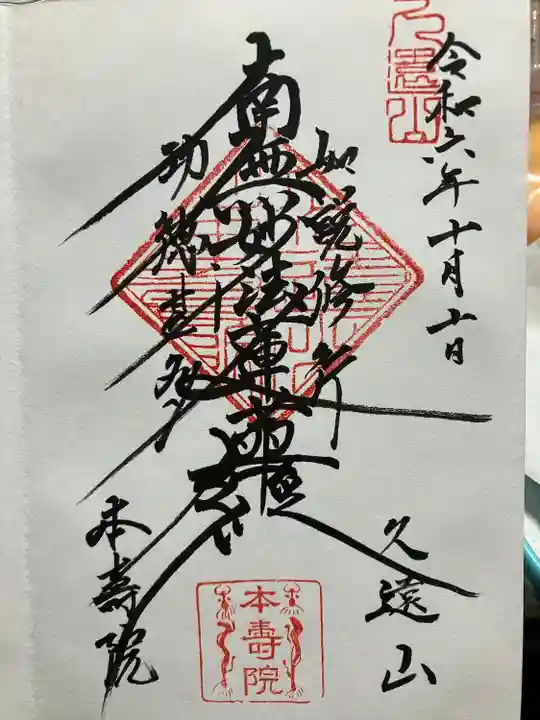 令和六年十月十日
久遠山
如説修行
南無妙法蓮華経
功徳甚多
本壽院
久遠山
本壽院